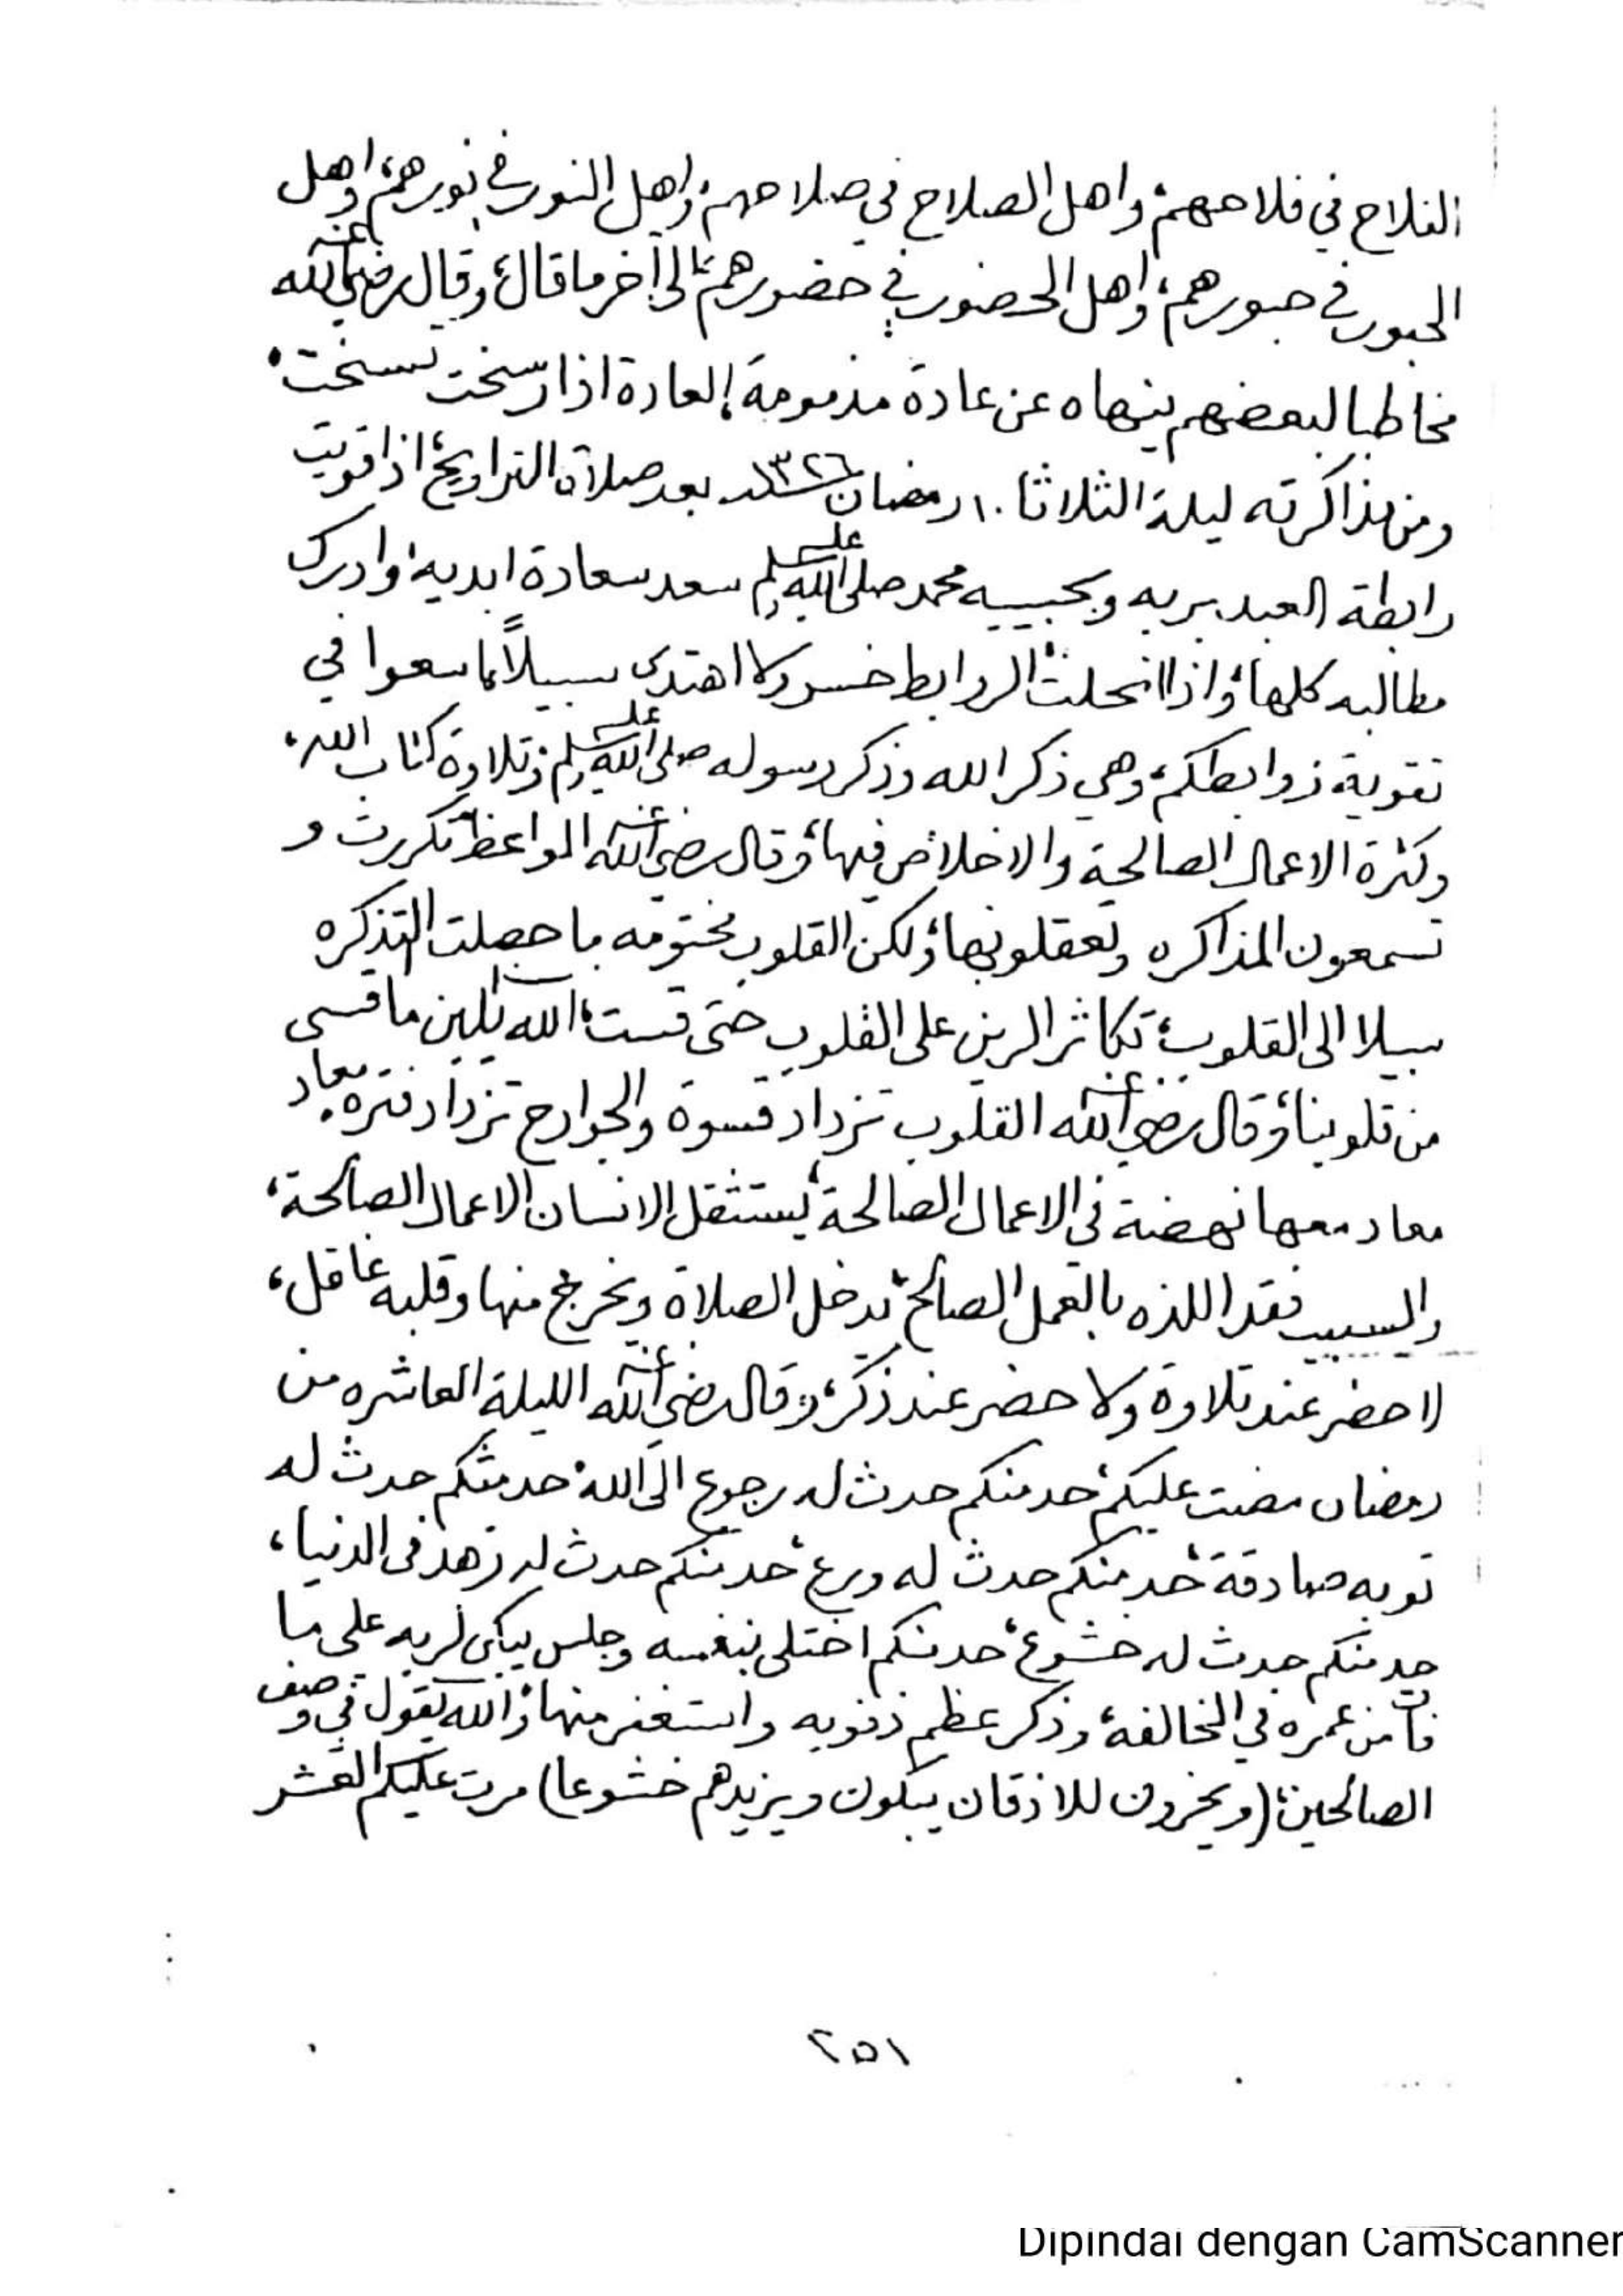 الفلاح في فلاحهم، واهل الصلاح في صلاحهم، واهل النور في نورهم، واهل
الحبور في حبورهم، واهل الحضور في حضورهم، الى آخر ما قال، وقال رضي الله عنه
مخاطبا لبعضهم ينهاه عن عادة مذمومة، العادة اذا رسخت نسخت،
ومن مذاكرته ليلة الثلاثا ١٠ رمضان ١٣٢٦ بعد صلاة التراويح، اذا قويت
رابطة العبد بربه وبحبيبه محمد صلى الله عليه وسلم سعد سعادة ابدية، وادرك
مطالبه كلها، واذا انحلت الروابط خسر ولا اهتدى سبيلاً، اسعوا في
تقوية روابطكم، وهي ذكر الله وذكر رسوله صلى الله عليه وسلم وتلاوة كتاب الله،
وكثرة الاعمال الصالحة والاخلاص فيها، وقال رضي الله عنه المواعظ تكررت و
تسمعون المذاكره وتعقلونها، ولكن القلوب مختومه ما حصلت التذكره
سبيلا الى القلوب، تكاثر الرين على القلوب حتى قست، الله يلين ما قسى
من قلوبنا، وقال رضي الله عنه القلوب تزداد قسوة والجوارح تزداد فتره، معاد
معاد معها نهضة في الاعمال الصالحة، يستثقل الانسان الاعمال الصالحة،
والسبب فقد اللذه بالعمل الصالح، يدخل الصلاة ويخرج منها وقلبه غافل،
لا حضر عند تلاوة ولا حضر عند ذكر، وقال رضي الله عنه الليلة العاشره من
رمضان مضت عليكم، حد منكم حدث له رجوع الى الله، حد منكم حدث له
توبه صادقة، حد منكم حدث له ورع، حد منكم حدث له زهد في الدنيا،
حد منكم حدث له خشوع، حد منكم اختلى بنفسه وجلس يبكي لربه على ما
فات من عمره في المخالفة، وذكر عظم ذنوبه واستغفر منها، والله يقول في وصف
الصالحين، (ويخرون للاذقان يبكون ويزيدهم خشوعا) مرت عليكم العشر
٢٥١
Dipindai dengan CamScanner